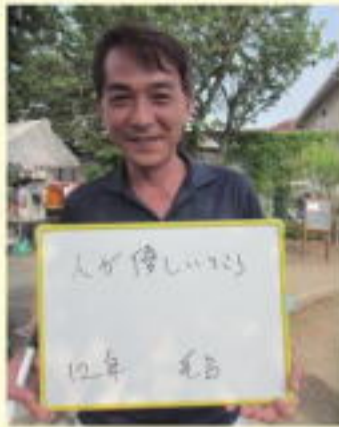 人が優しいところ
12年